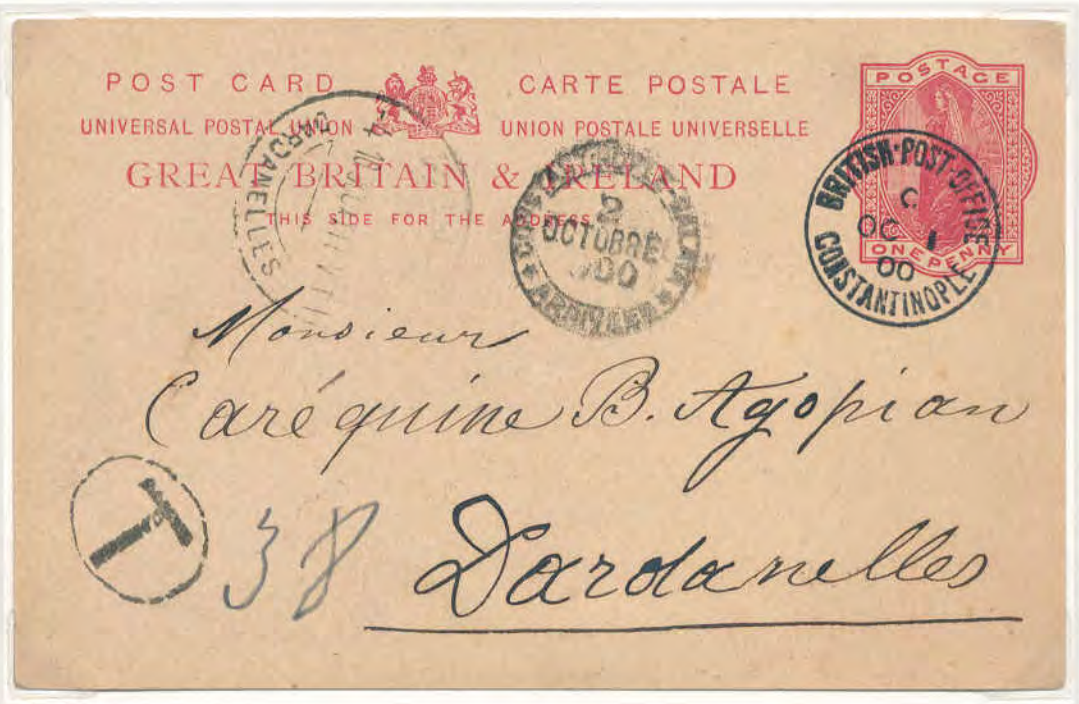 POST CARD CARTE POSTALE
UNIVERSAL POSTAL UNION UNION POSTALE UNIVERSELLE
GREAT BRITAIN & IRELAND
THIS SIDE FOR THE ADDRESS
POSTAGE
ONE PENNY
BRITISH·POST·OFFICE
C
OC 1
00
CONSTANTINOPLE
DARDANELLES
2
OCTOBRE
Monsieur
Caréquine B. Agopian
T
38
Dardanelles